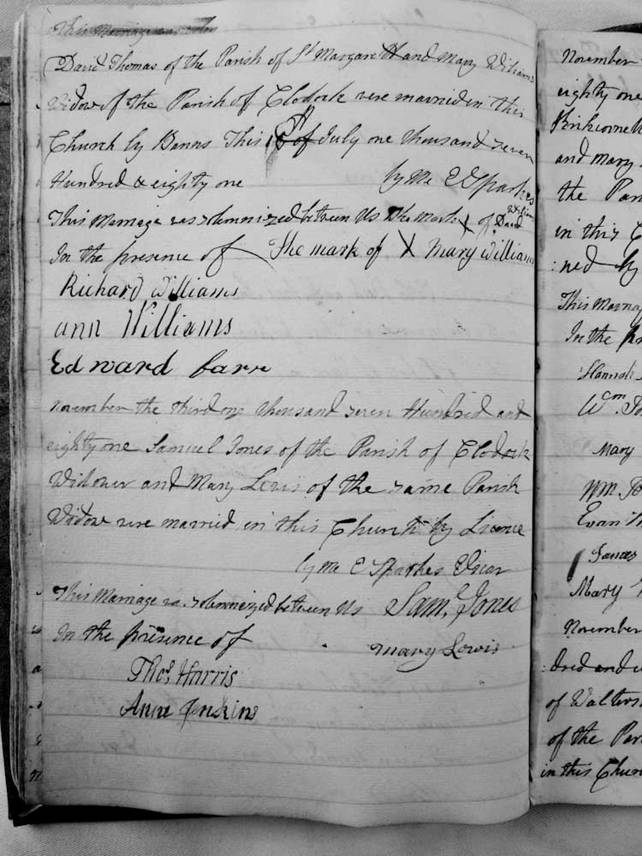 This Marriage was
David Thomas of the Parish of St Margarett and Mary Williams
Widow of the Parish of Clodock were married in this
Church by Banns This of July one thousand seven
Hundred & eighty one by Me E Sparkes
This Marriage was solemnized between Us The Mark X of David
In the presence of The mark of X Mary Williams
Richard Williams
ann Williams
Edward Parr
november the third one thousand seven Hundred and
eighty one Samuel Jones of the Parish of Clodock
Widower and Mary Lewis of the same Parish
Widow were married in this Church by Licence
by me E Sparkes Vicar
This Marriage was solemnized between Us Saml Jones
In the presence of mary Lewis
Thos Harris
Anne Jenkins
November
eighty one
and Mary
the Par
in this C
:ned by
This Marria
In the pr
Hannah
Wm Th
Mary
Wm
Evan
James
Mary
November
:dred and
of Walters
of the Par
in this Chur